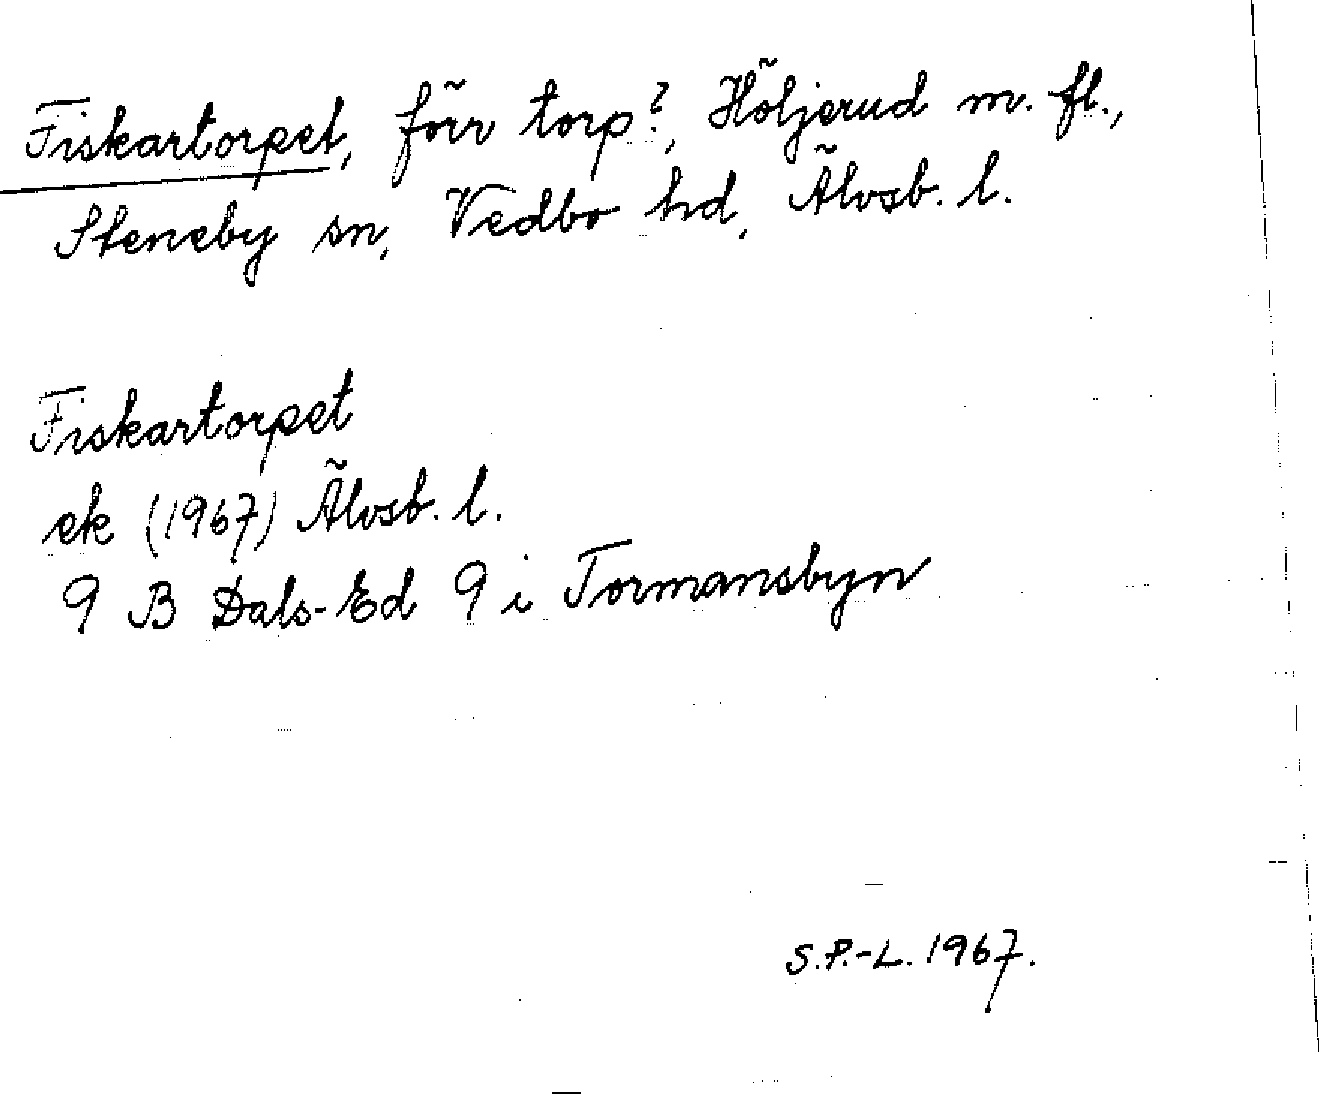 Fiskartorpet, förr torp?, Höljerud m. fl.,
Steneby sn, Vedbo hd, Älvsb. l.
Fiskartorpet
ek (1967) Älvsb. l.
9 B Dals-Ed 9 i Tormansbyn
S.P.-L. 1967.